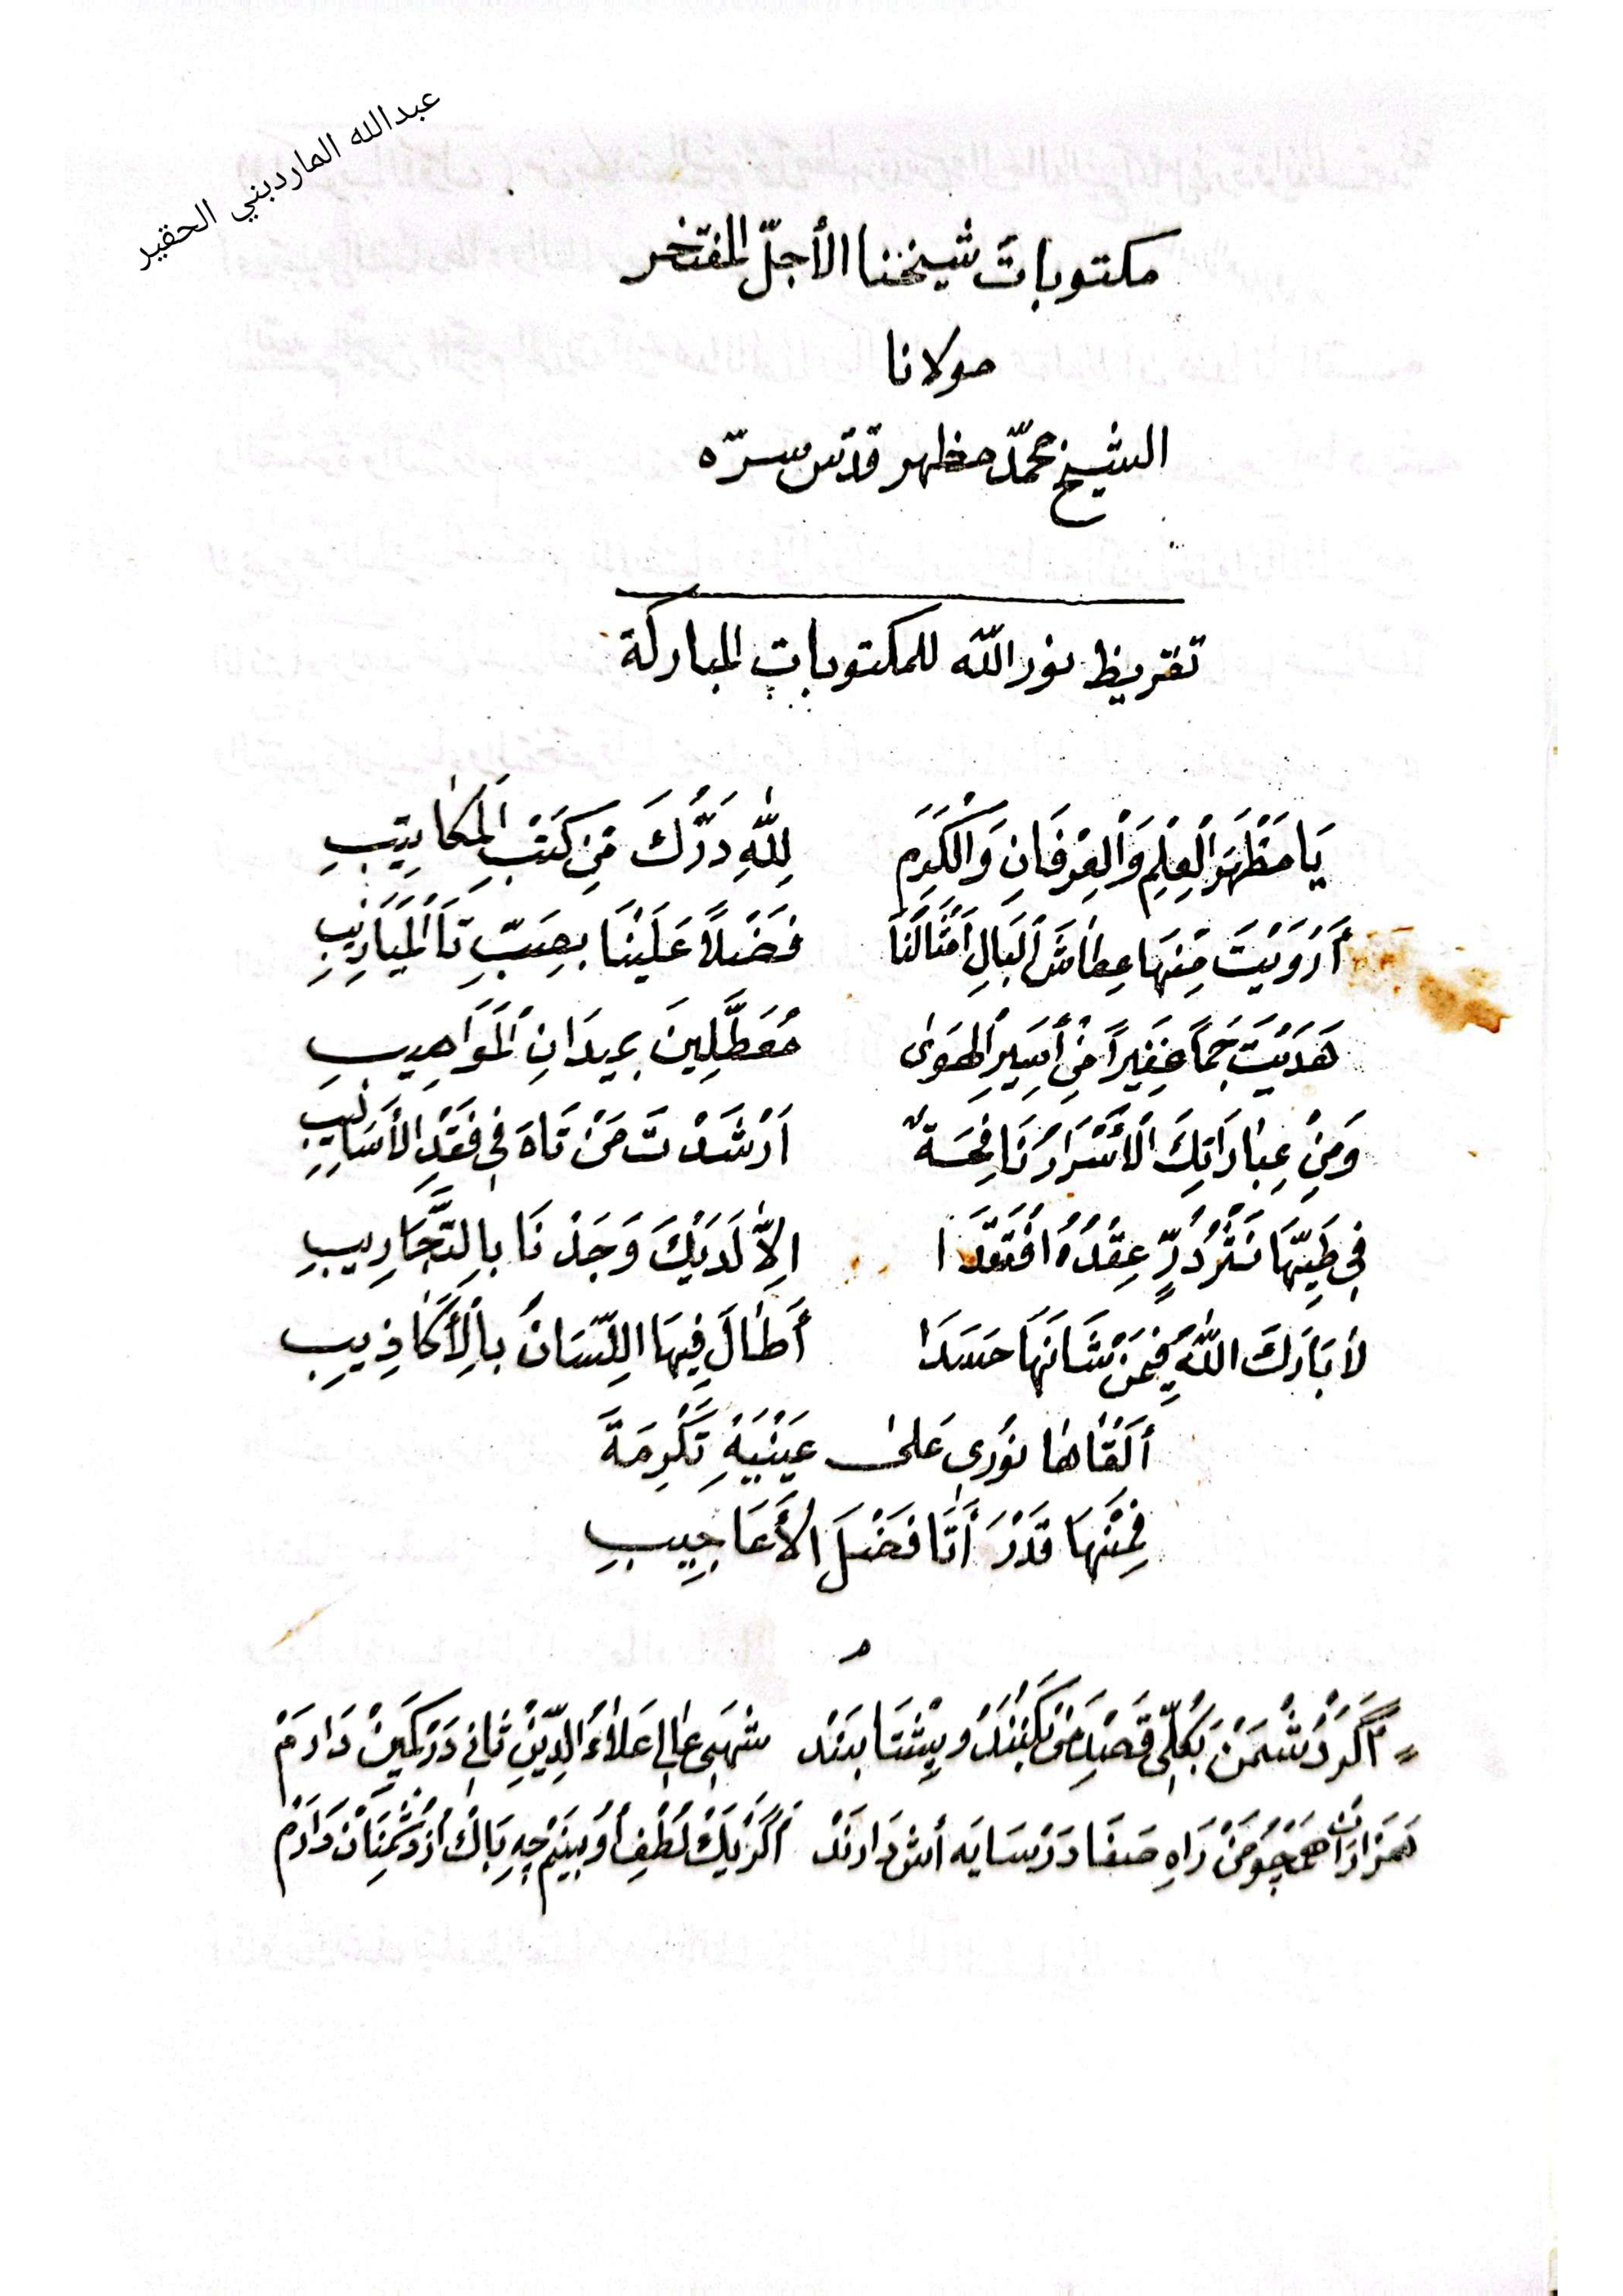 عبدالله المارديني الحقير
مكتوبات شيخنا الأجلّ المفتخر
مولانا
الشيخ محمّد مظهر قدّس سرّه
تقريظ نور اللّٰه للمكتوبات المباركة
يَا مَظْهَرَ الْعِلْمِ وَالْعِرْفَانِ وَالْكَرَمِ لِلّٰهِ دَرُّكَ مِنْ كَتْبِ الْمَكَاتِيبِ
أَرْوَيْتَ مِنْهَا عِطَاشَ الْبَالِ أَمْثَالَنَا فَضْلاً عَلَيْنَا بِصَبِّ الْمَيَازِيبِ
هَدَيْتَ جَمًّا غَفِيرًا مِنْ أَسِيرِ الْهَوٰى مُعَطَّلِينَ بِمِيدَانِ الْمَوَاهِيبِ
وَمِنْ عِبَارَاتِكَ الْأَسْرَارُ نَافِحَةٌ اَرْشَدْتَ مَنْ تَاهَ فِي فَقْدِ الْأَسَالِيبِ
فِي طَيِّهَا نَثْرُ دُرٍّ عِقْدُهُ افْتَقَدَا اِلاَّ لَدَيْكَ وَجَدْنَا بِالتَّجَارِيبِ
لاَ بَارَكَ اللّٰهُ فِيمَنْ شَانَهَا حَسَدًا أَطَالَ فِيهَا اللِّسَانُ بِالْأَكَاذِيبِ
أَلْقَاهَا نُورِي عَلىٰ عَيْنَيْهِ تَكْرِمَةً
فَمِنْهَا قَدْرَ أَتَا فَضْلَ الْأَعَاجِيبِ
م
= اَگَرْ دُشْمَنْ بَكُلِّي قَصْدِ مَنْ كُنَنْدُ وبِشْتَابَنْد شَهَىِ عَالِي عَلاَءُ الدِّينِ ثَانِي دَرْ كَمِينْ دَارَمْ
هَزَارَانْ هَمْچُو مَنْ رَاهِ صَفَا دَرْ سَايَه أش دَارَنْد اَگَرْ يَكْ لُطْفِ اُو بِينَمْ چِه بَاكْ اَزْ دُشْمَنَانْ دَارَمْ